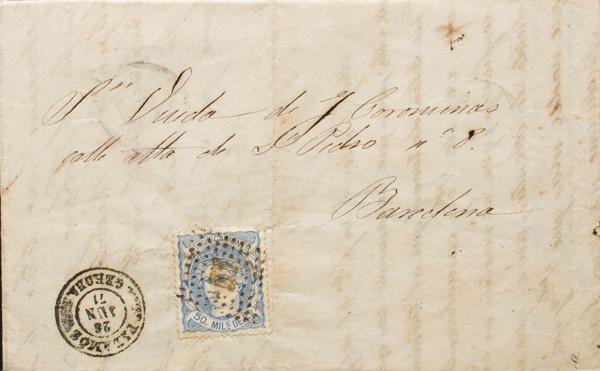 Sra Viuda de J Corominas
calle alta de S Pedro nº 8.
Barcelona
COMUNICACIONES
50. MILS DE E.
PALAMOS
28
JUN
71
GERONA